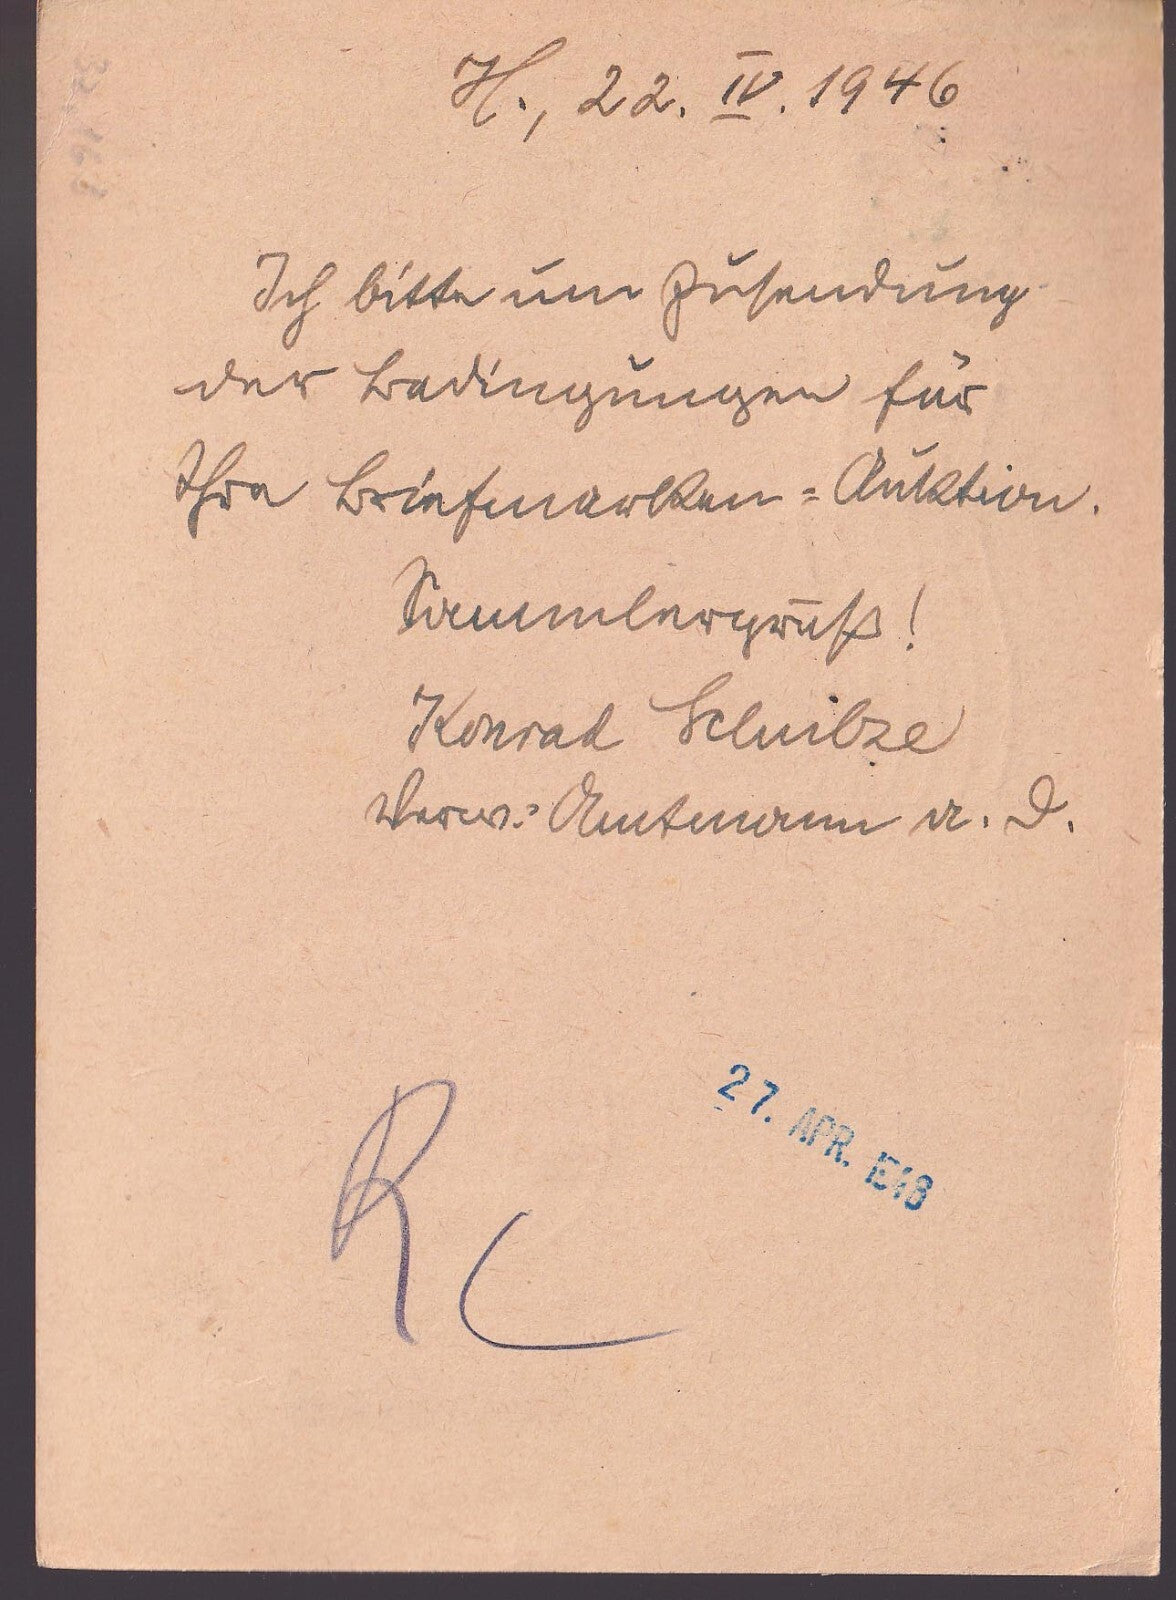 H., 22. IV. 1946
Ich bitte um Zusendung
der Bedingungen für
Ihre Briefmarken=Auktion.
Sammlergruß!
Konrad
Verw.=Amtmann a. D.
R
27. APR.